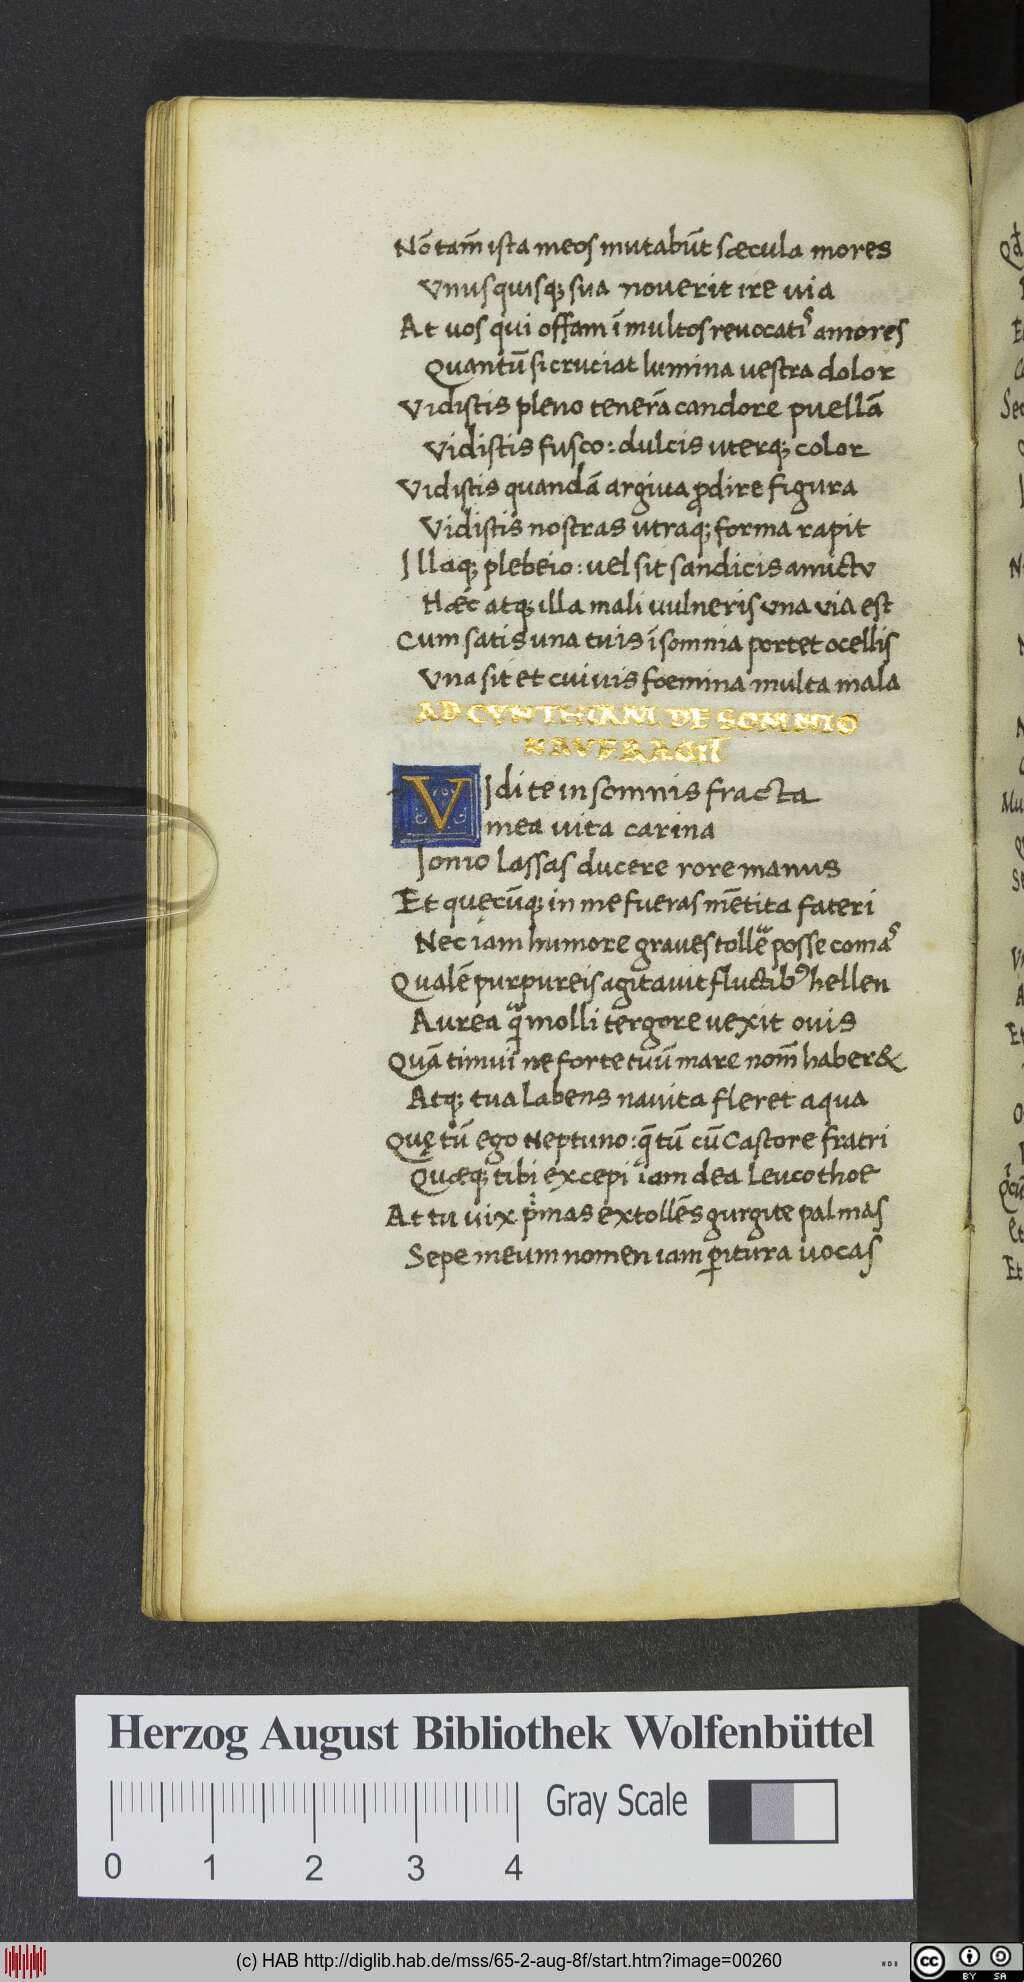 Nō tam̄ ista meos mutabūt sæcula mores
Vnusquisq; sua noverit ire uia
At uos qui offam ī multos revocatis amores
Quantū si cruciat lumina uestra dolor
Vidistis pleno tenerā candore puellā
Vidistis fusco: dulcis uterq; color
Vidistis quandā argiua ꝓdire figura
Vidistis nostras utraq; forma rapit
Illaq; plebeio: uel sit sandicis amictu
Hæc atq; illa mali uulneris una via est
Cum satis una tuis īsomnia portet ocellis
Vna sit et cuiuis foemina multa mala
AD CYNTHIAM DE SOMNIO
NAVFRAGII
VIdi te in somnis fracta
mea uita carina
Ionio lassas ducere rore manus
Et quęcūq; in me fueras mētita fateri
Nec iam humore graues tollē posse comas
Qualē purpureis agitauit fluctibꝰ hellen
Aurea q̄ molli tergore uexit ouis
Quā timui ne forte tuū mare nom̄ haber&
Atq; tua labens nauita fleret aqua
Quę tū ego Neptuno: q̄ tū cū Castore fratri
Quæq; tibi excepi iam dea Leucothoe
At tu uix pͥmas extollēs gurgite palmas
Sepe meum nomen iam ꝑitura uocas
Herzog August Bibliothek Wolfenbüttel
Gray Scale
0 1 2 3 4
(c) HAB http://diglib.hab.de/mss/65-2-aug-8f/start.htm?image=00260
cc BY SA